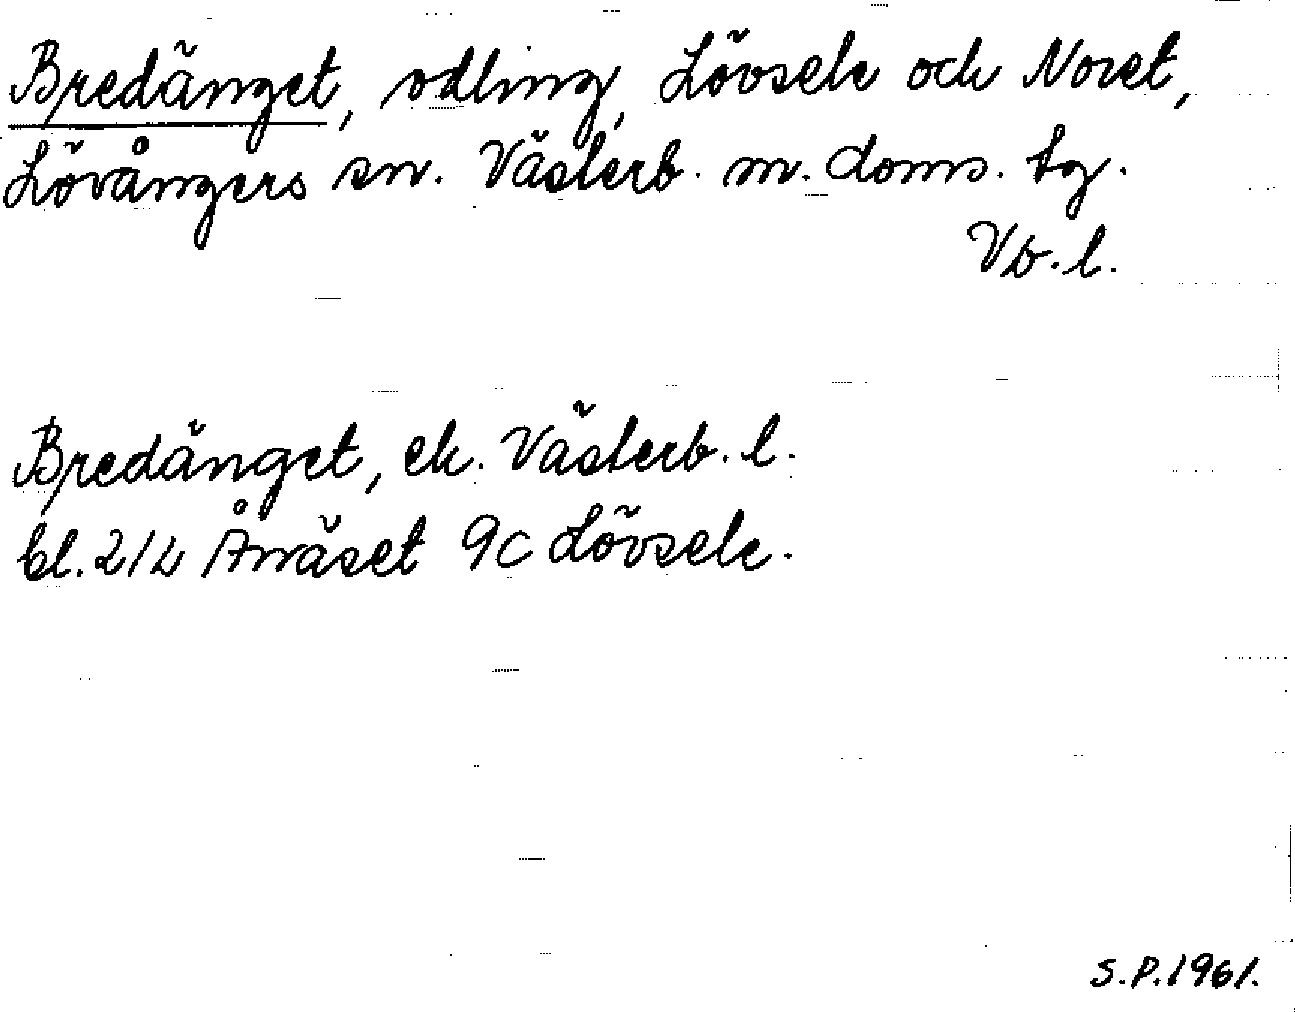 Bredänget, odling, Lövsele och Noret,
Lövångers sn. Västerb. m. doms. tg.
Vb. l.
Bredänget, ek. Västerb. l.
bl. 21L Ånäset 9c Lövsele.
S.P. 1961.